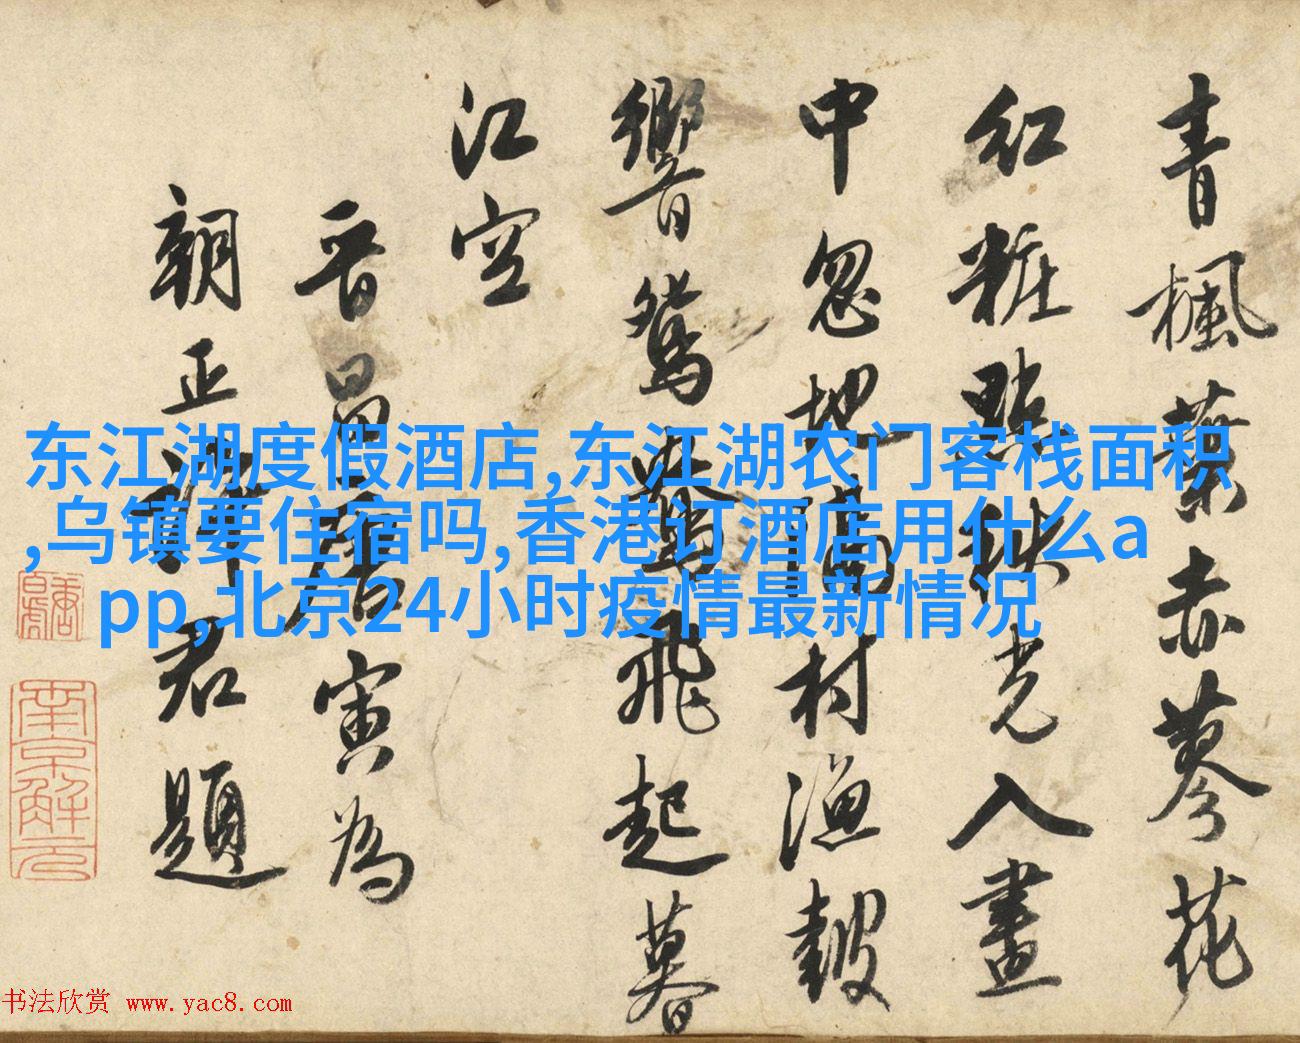 青楓葉赤蓼花
紅粧點秋光入畫
中忽地隔村漁鼓
響鴛鴦飛起暮
江空
晉昌唐寅為
朝正君題
南京解元
东江湖度假酒店,东江湖农门客栈面积
,乌镇要住宿吗,香港订酒店用什么a
pp,北京24小时疫情最新情况
书法欣赏 www.yac8.com